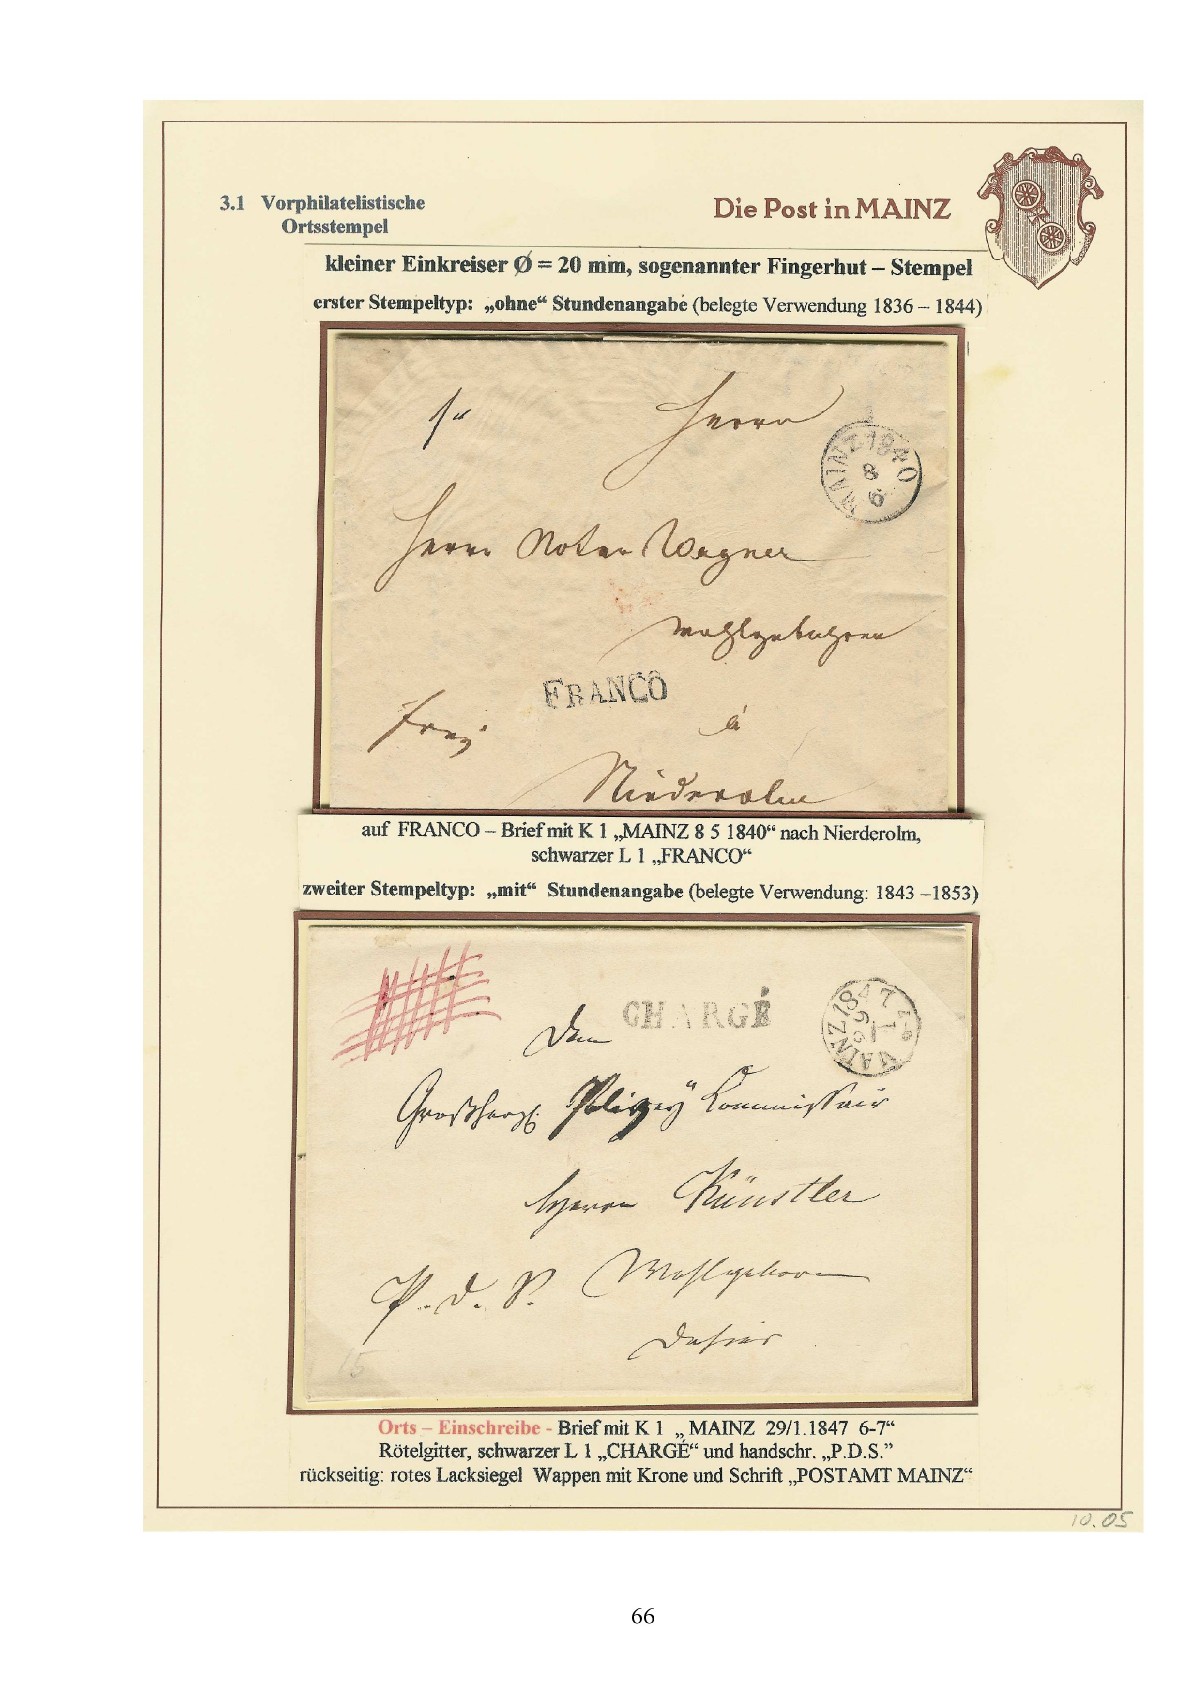 3.1 Vorphilatelistische
Ortsstempel
Die Post in MAINZ
kleiner Einkreiser Ø = 20 mm, sogenannter Fingerhut – Stempel
erster Stempeltyp: „ohne“ Stundenangabe (belegte Verwendung 1836 – 1844)
Herrn
MAINZ 1840
8
Herrn Notar Wagner
Wohlgebohren
FRANCO
frey
à
Niederolm
auf FRANCO – Brief mit K 1 „MAINZ 8 5 1840“ nach Nierderolm,
schwarzer L 1 „FRANCO“
zweiter Stempeltyp: „mit“ Stundenangabe (belegte Verwendung: 1843 –1853)
CHARGÉ
MAINZ 1847
29
1
6-7
Dem
Großherzgl. Polizey Commissair
Herrn Künstler
P. d. S. Wohlgeboren
Dahier
15
Orts – Einschreibe - Brief mit K 1 „ MAINZ 29/1.1847 6-7“
Rötelgitter, schwarzer L 1 „CHARGÉ“ und handschr. „P.D.S.”
rückseitig: rotes Lacksiegel Wappen mit Krone und Schrift „POSTAMT MAINZ“
10.05
66